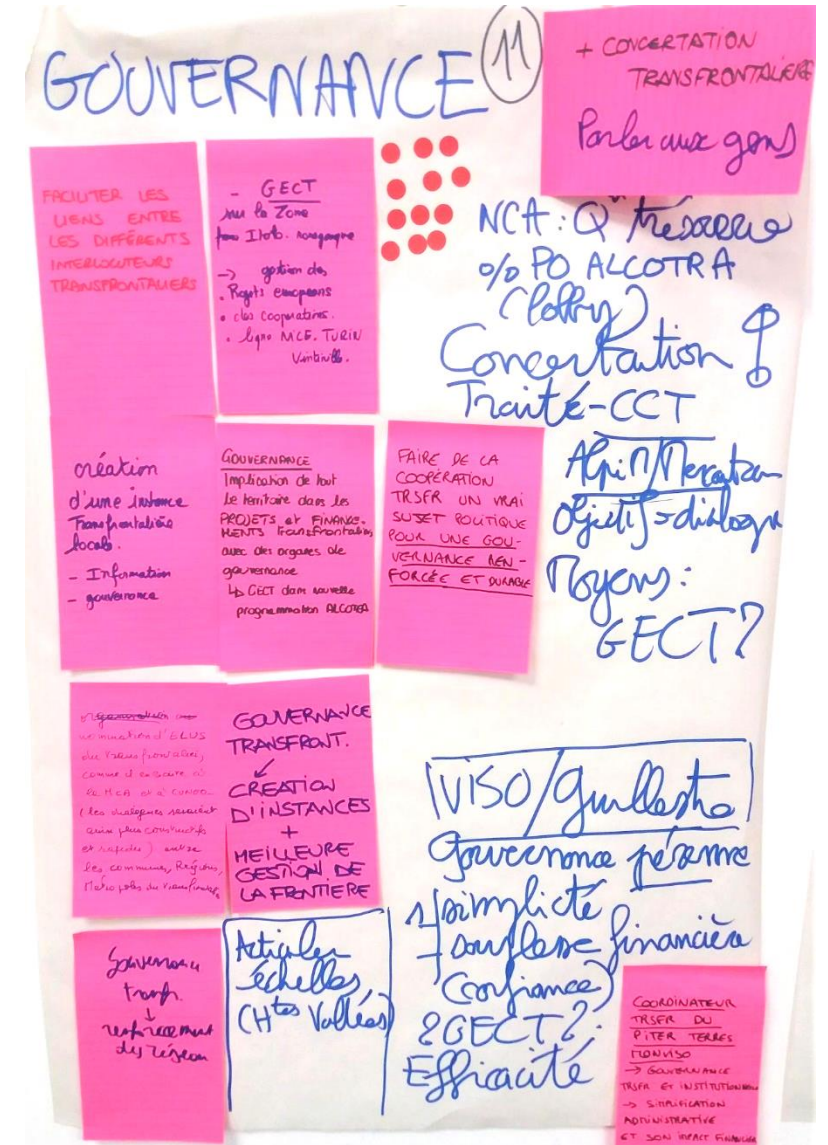 GOUVERNANCE
11
+ CONCERTATION
TRANSFRONTALIERE
Parler aux gens
FACILITER LES
LIENS ENTRE
LES DIFFÉRENTS
INTERLOCUTEURS
TRANSFRONTALIERS
- GECT
sur la Zone
→ gestion des
. Projets européens
. des coopérations.
. ligne NICE. TURIN
Vintimille.
NCA : Q° trésorerie
% PO ALCOTRA
(lobby)
Concertation
Traité-CCT
création
d'une instance
Transfrontalière
locale.
- Information
- gouvernance
GOUVERNANCE
Implication de tout
le territoire dans les
PROJETS et FINANCE-
MENTS transfrontaliers
avec des organes de
gouvernance
↳ GECT dans nouvelle
programmation ALCOTRA
FAIRE DE LA
COOPÉRATION
TRSFR UN VRAI
SUJET POLITIQUE
POUR UNE GOU-
VERNANCE REN-
FORCÉE ET DURABLE
AlpiM/Mercantour
Objectif = dialogue
Moyens :
GECT?
nomination d'ELUS
du transfrontalier,
(les dialogues seraient
ainsi plus constructifs
et rapides) entre
les communes, Régions,
Métropoles du transfrontal.
GOUVERNANCE
TRANSFRONT.
↙
CREATION
D'INSTANCES
+
MEILLEURE
GESTION DE
LA FRONTIERE
VISO/Guillestro
Gouvernance pérenne
simplicté
souplesse financière
(confiance)
GECT?
Efficacité
Gouvernance
transf.
↓
renforcement
du réseau
Articuler
échelles
(Htes Vallées)
COORDINATEUR
TRSFR DU
PITER TERRES
MONVISO
→ GOUVERNANCE
TRSFR ET INSTITUTIONNELLE
→ SIMPLIFICATION
ADMINISTRATIVE
ET SON IMPACT FINANCIER